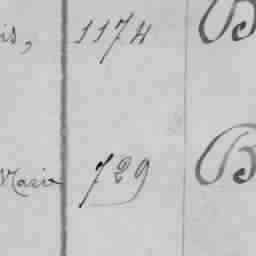 is, 1174 B
Marie 729 B